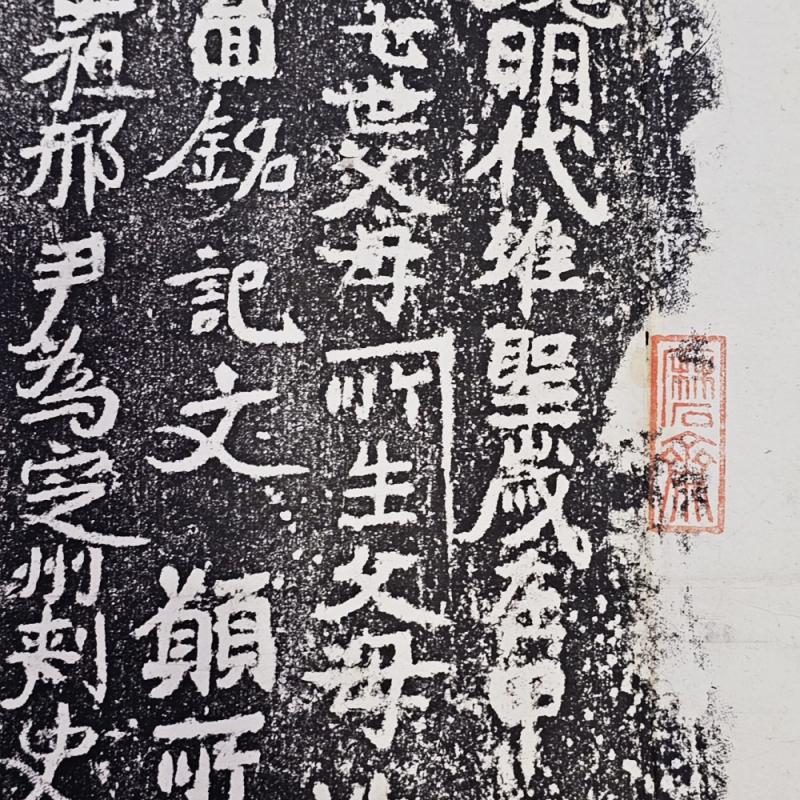 明代維聖歲在甲
七世父母所生父母
面銘記文願所
祖那尹為定州刺史
石齋